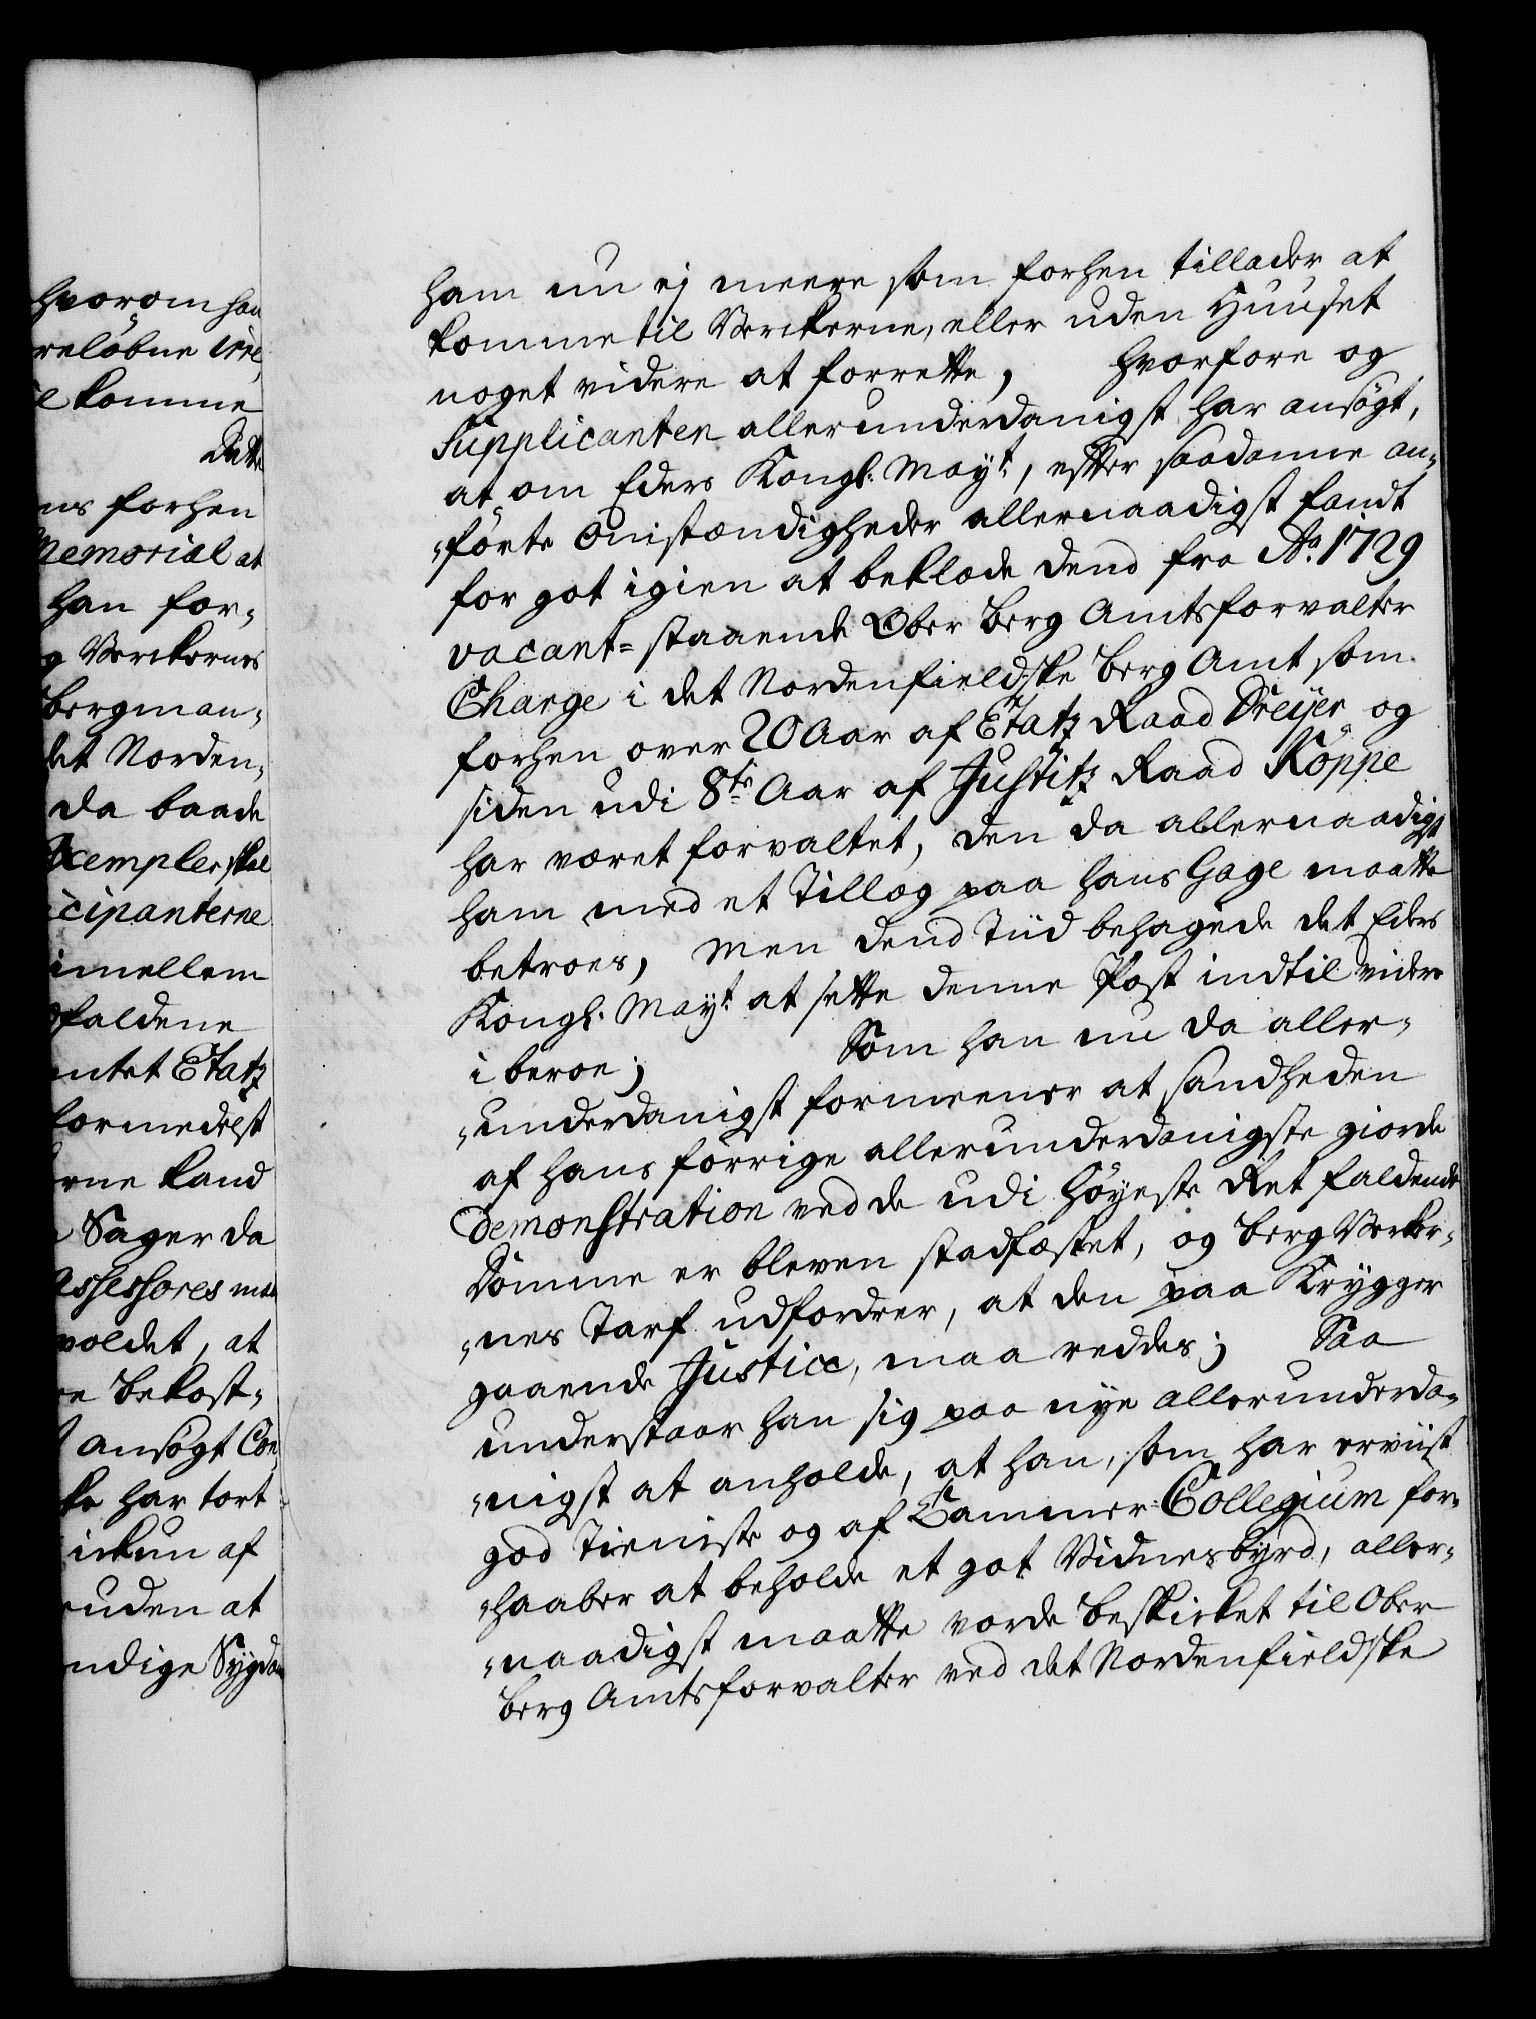 hvorom han
reløbne Irre
e komme
Dette
ns forhen
Memorial at
han for-
g Verckernes
Bergman-
det Norden-
da baade
Exempler skal
icipanterne
imellem
faldene
ntet Etatz
formedelst
rne kand
Sager da
Assessores maa
voldet, at
re bekost-
ansøgt Con
ke har tort
irkun af
uden at
ndige Sygdom
ham nu ej meere som forhen tillader at
komme til Verckerne, eller uden Huuset
noget videre at forrette, hvorfore og
Supplicanten allerunderdanigst har ansøgt,
at om Eders Kongl: Mayt, efter saadanne an-
førte Omstændigheder allernaadigst fandt
for got igien at beklæde dend fra Ao 1729
vacant-staaende Ober Berg Amtsforvalter
Charge i det Nordenfieldske Berg Amt som
forhen over 20 Aar af Etatz Raad Dreyer og
siden udi 8te Aar af Justitz Raad Köppe
har været forvaltet, den da allernaadigst
ham med et Tillæg paa hans Gage maatte
betroes, men dend Tiid behagede det Eders
Kongl: Mayt: at sætte denne Post indtil videre
i beroe; Som han nu da aller-
underdanigst formeener at sandheden
af hans forrige allerunderdanigste giorde
demonstration ved de udi Høyeste Ret faldende
Domme er bleven stadfæstet, og Berg Vercker-
nes Tarf udfordrer, at den paa Krygger
gaaende Justice, maa reddes; Saa
understaar han sig paa nye allerunderda-
nigst at anholde, at han, som har erviist
god Tieniste og af Cammer-Collegium for-
haaber at beholde et got Vidnesbyrd, aller-
naadigst maatte vorde beskicket til Ober
Berg Amtsforvalter ved det Nordenfieldske